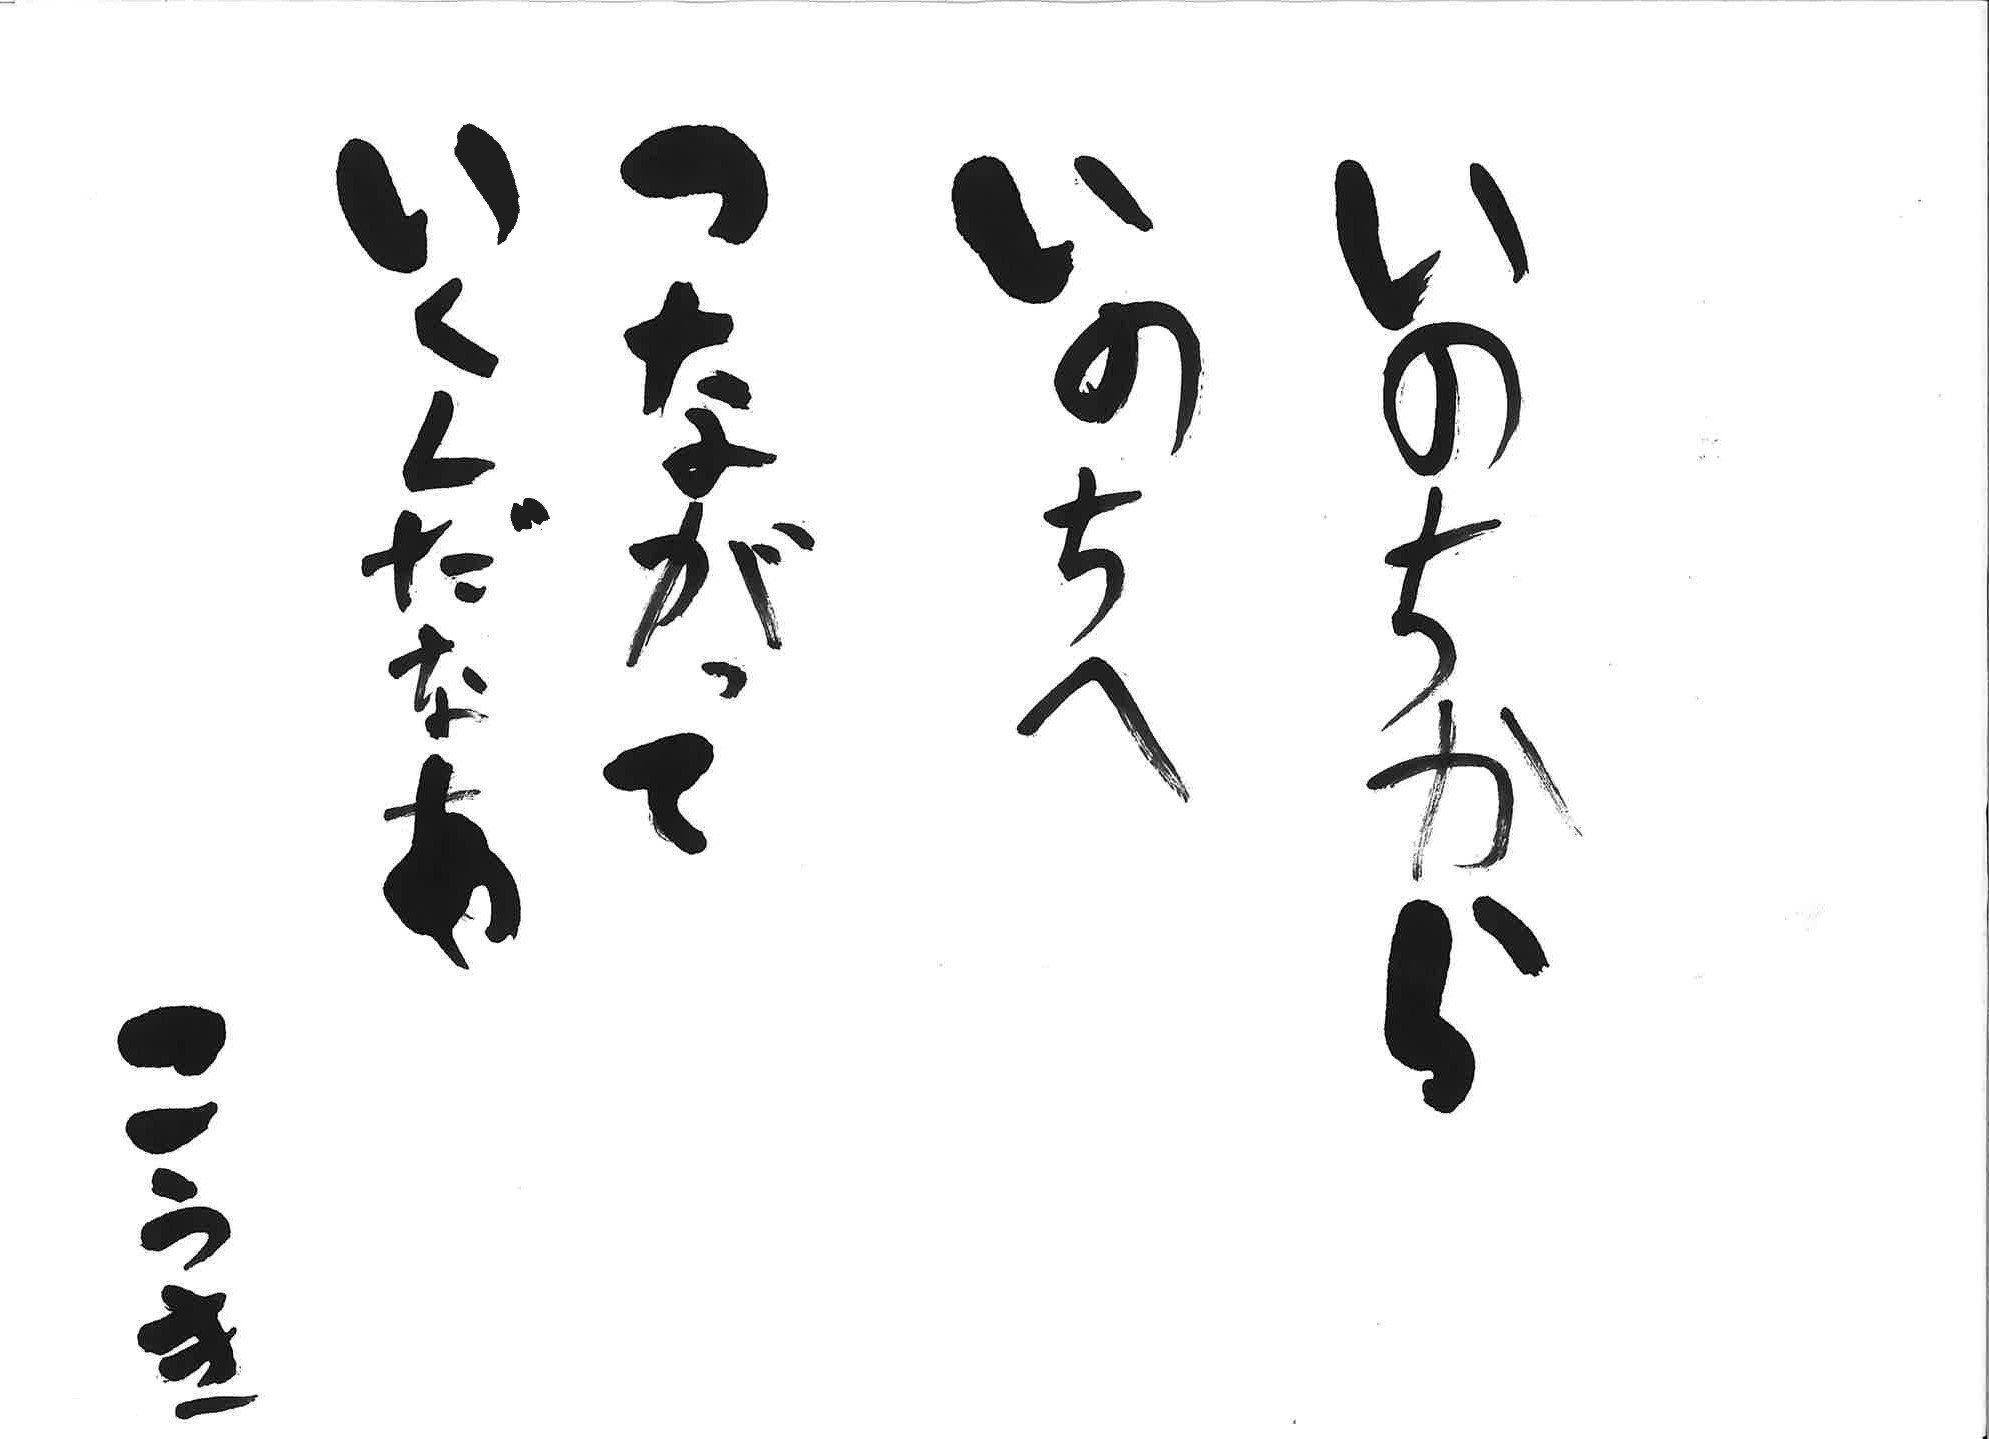 いのちから
いのちへ
つながって
いくんだなあ
こうき